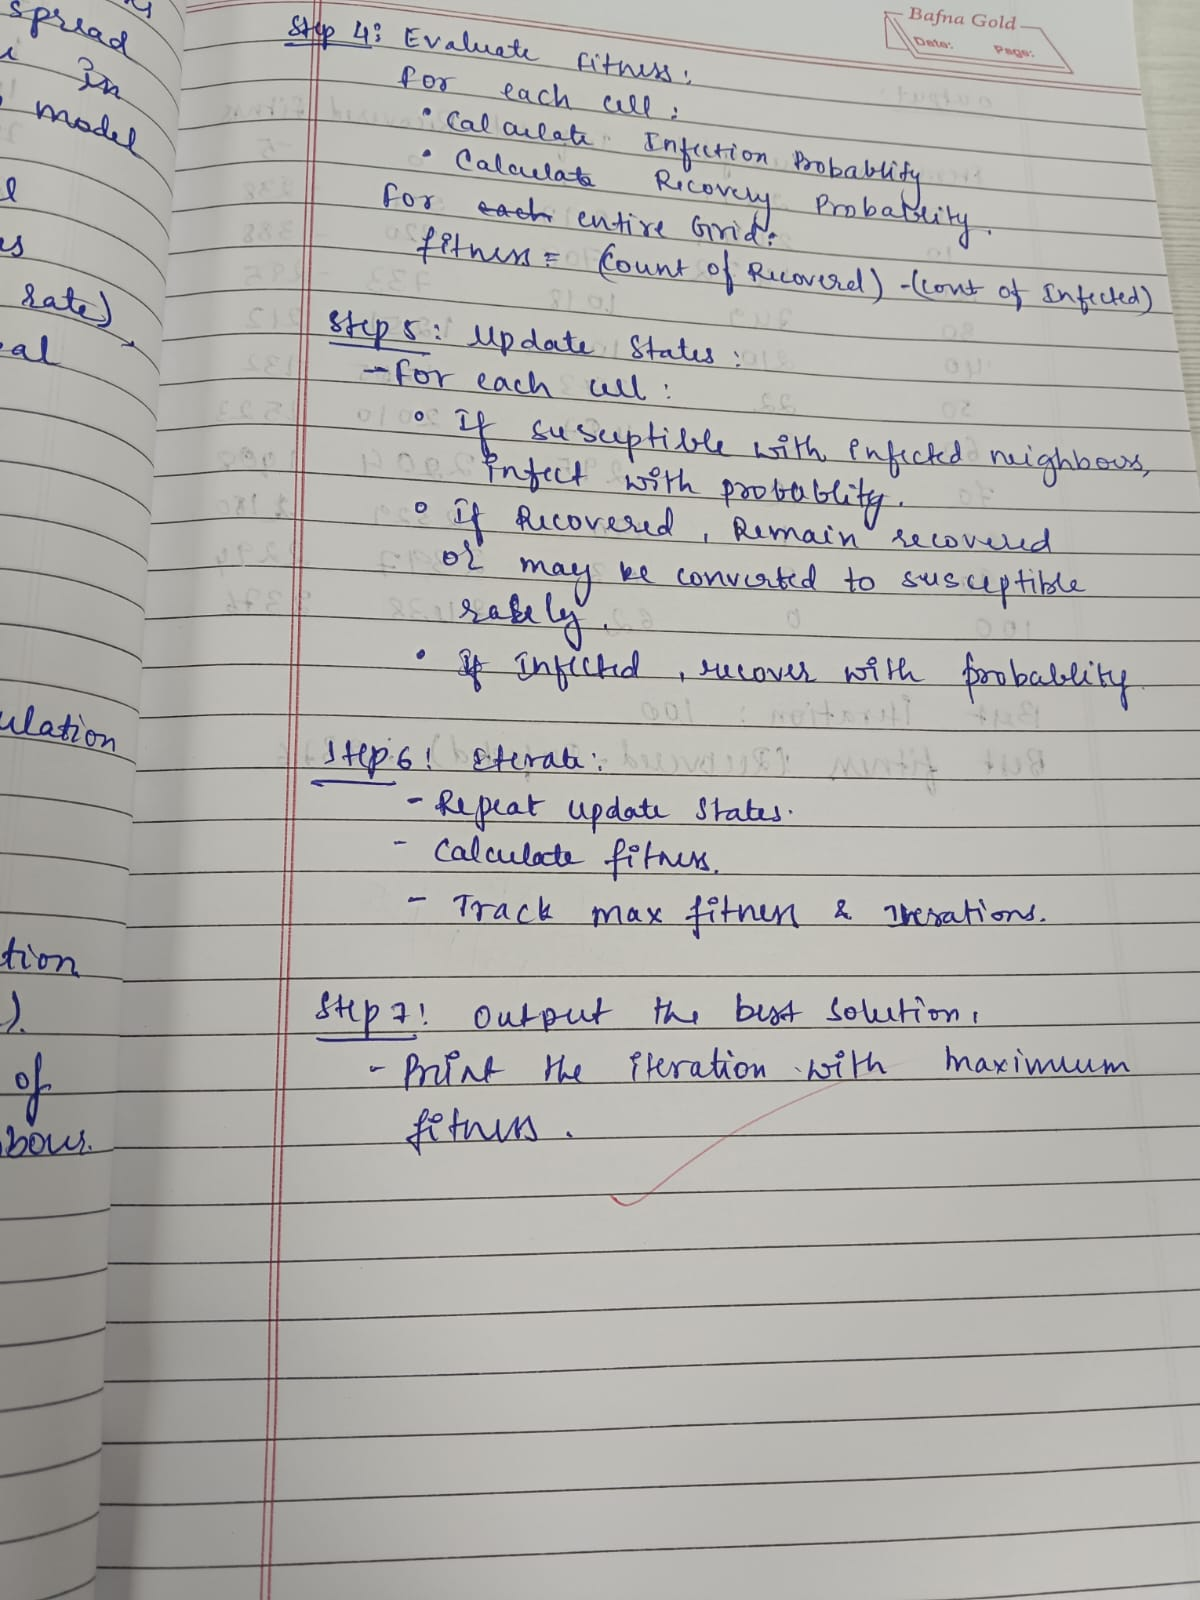 spread
in
model
rate)
ulation
tion
).
of
bour.
Bafna Gold
Date: Page:
Step 4: Evaluate fitness:
for each cell:
• Calculate Infection Probablity
• Calculate Recovery Probablity.
for each entire Grid:
fitness = (Count of Recovered) - (cont of Infected)
Step 5: Update States:
- for each cell:
• If susceptible with infected neighbours,
infect with probablity.
• If Recovered, Remain recovered
or may be converted to susceptible
rarely.
• If Infected, recover with probablity.
Step 6: Iterate:
- Repeat update states.
- Calculate fitness.
- Track max fitness & iterations.
Step 7: Output the best solution.
- Print the iteration with maximum
fitness.